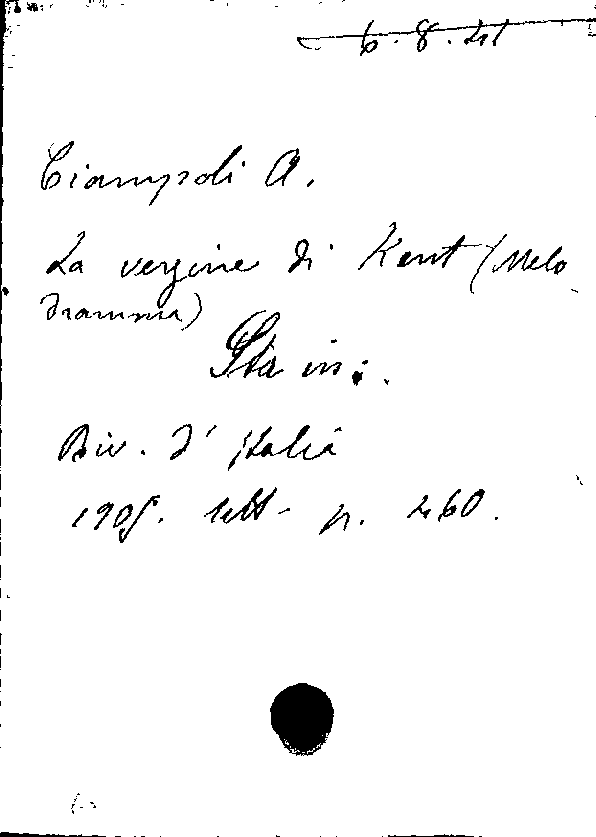 6.8.41
Ciampoli A.
La vergine di Kent (Melo
dramma)
Sta in:
Riv. d'Italia
1905. sett. p. 460.